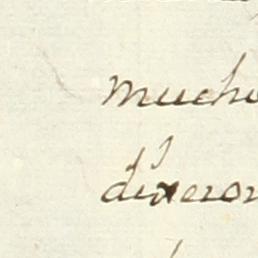 mucho
dixeron